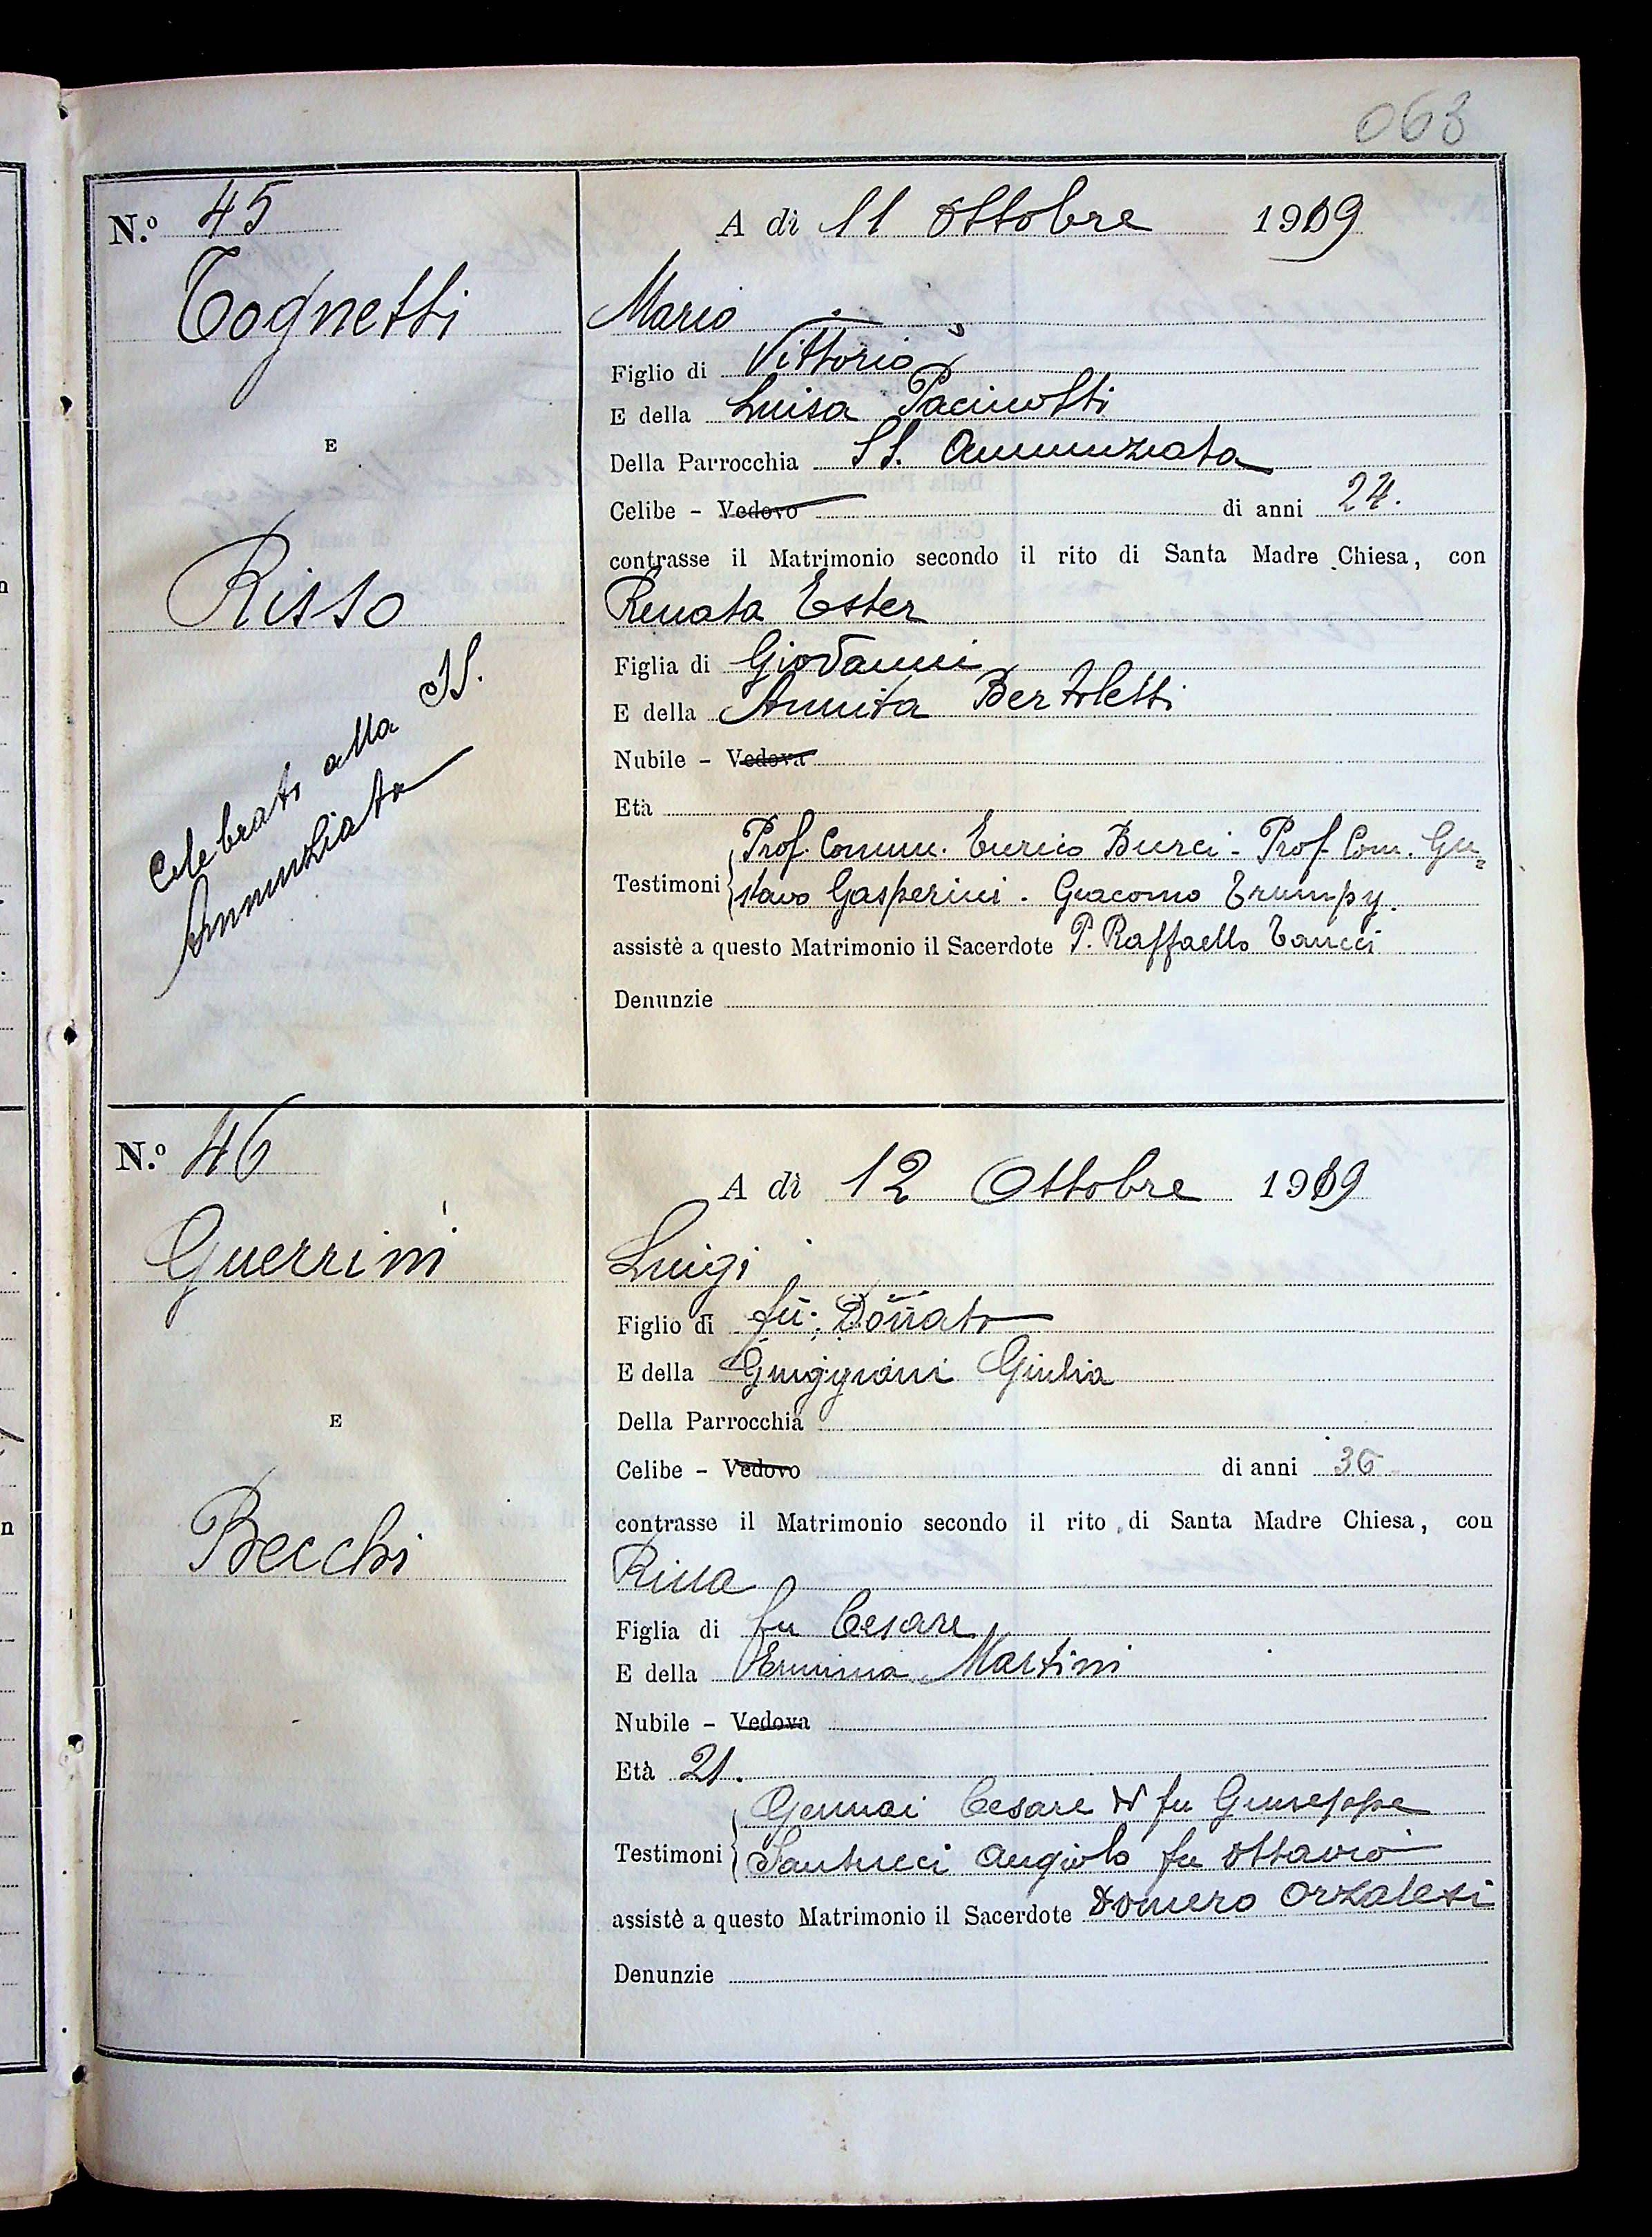 063
N.º 45
A dì 11 Ottobre 1919
Tognetti
Mario
Figlio di Vittorio
E della Luisa Pacinotti
E
Della Parrocchia SS. Annunziata
Celibe - Vedovo di anni 24.
contrasse il Matrimonio secondo il rito di Santa Madre Chiesa, con
Risso
Renata Ester
Figlia di Giovanni
E della Annita Bertoletti
Nubile - Vedova
Età
Celebrato alla SS.
Annunziata
Testimoni Prof. Comm. Enrico Burci - Prof. Com. Gu=
stavo Gasperini. Giacomo Trumpy.
assistè a questo Matrimonio il Sacerdote P. Raffaello Taucci
Denunzie
N.º 46
A dì 12 Ottobre 1919
Guerrini
Luigi
Figlio di fu: Donato
E della Giulia
E
Della Parrocchia
Celibe - Vedovo di anni 36
contrasse il Matrimonio secondo il rito di Santa Madre Chiesa, con
Becchi
Rina
Figlia di fu Cesare
E della Martini
Nubile - Vedova
Età 21.
Testimoni Gennai Cesare fu Giuseppe
Santucci Angiolo fu Ottavio
assistè a questo Matrimonio il Sacerdote Orzalesi
Denunzie